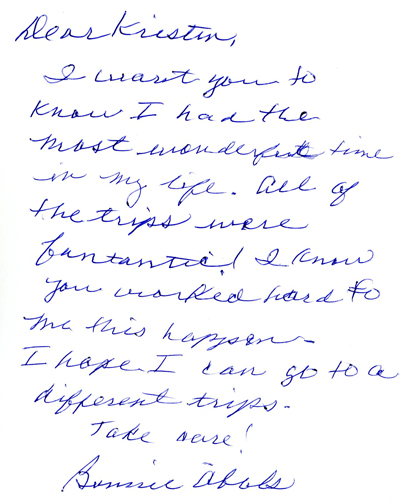 Dear Kristen,
I want you to
know I had the
most wonderful time
in my life. All of
the trips were
fantantic! I know
you worked hard to
me this happen.
I hope I can go to a
different trips.
Take care!
Bonnie